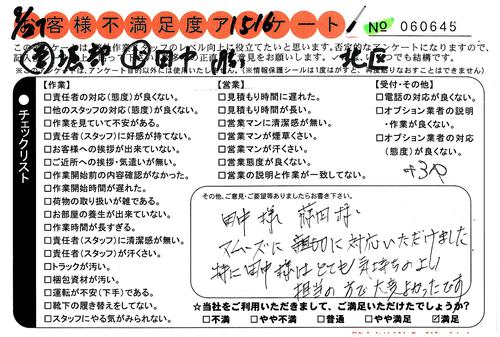 9/27 お客様不満足度アンケート! 1516 № 060645
このアンケートは、
今後のスタッフのレベル向上に役立てたいと思います。否定的なアンケートになりますので、
北区
※このアンケートは、アンケート目的以外には使用いたしません。(※情報保護シールは1度はがすと、再度貼りなおすことはできません)
チェックリスト
【作業】
□責任者の対応(態度)が良くない。
□他のスタッフの対応(態度)が良くない。
□作業を見ていて不安がある。
□責任者(スタッフ)に好感が持てない。
□お客様への挨拶が出来ていない。
□ご近所への挨拶・気遣いが無い。
□作業開始前の内容確認がなかった。
□作業開始時間が遅れた。
□荷物の取り扱いが雑である。
□お部屋の養生が出来ていない。
□作業時間が長すぎる。
□責任者(スタッフ)に清潔感が無い。
□責任者(スタッフ)が汗くさい。
□トラックが汚い。
□梱包資材が汚い。
□運転が安心(下手)である。
□靴下の履き替えをしてない。
□スタッフにやる気がみられない。
【営業】
□見積もり時間に遅れた。
□見積もり時間が長い。
□営業マンに清潔感が無い。
□営業マンが煙草くさい。
□営業マンが汗くさい。
□営業態度が良くない。
□営業の説明と作業が一致してない。
【受付・その他】
□電話の対応が良くない。
□オプション業者の説明
・作業が良くない。
□オプション業者の対応
(態度)が良くない。
その他、ご意見・ご要望等ありましたらお書き下さい。
田中様 藤田様
スムーズに親切に対応いただけました
特に田中様はとても気持ちのよい
担当の方で大変よかったです
☆当社をご利用いただきまして、ご満足いただけたでしょうか?
□不満 □やや不満 □普通 □やや満足 ☑満足